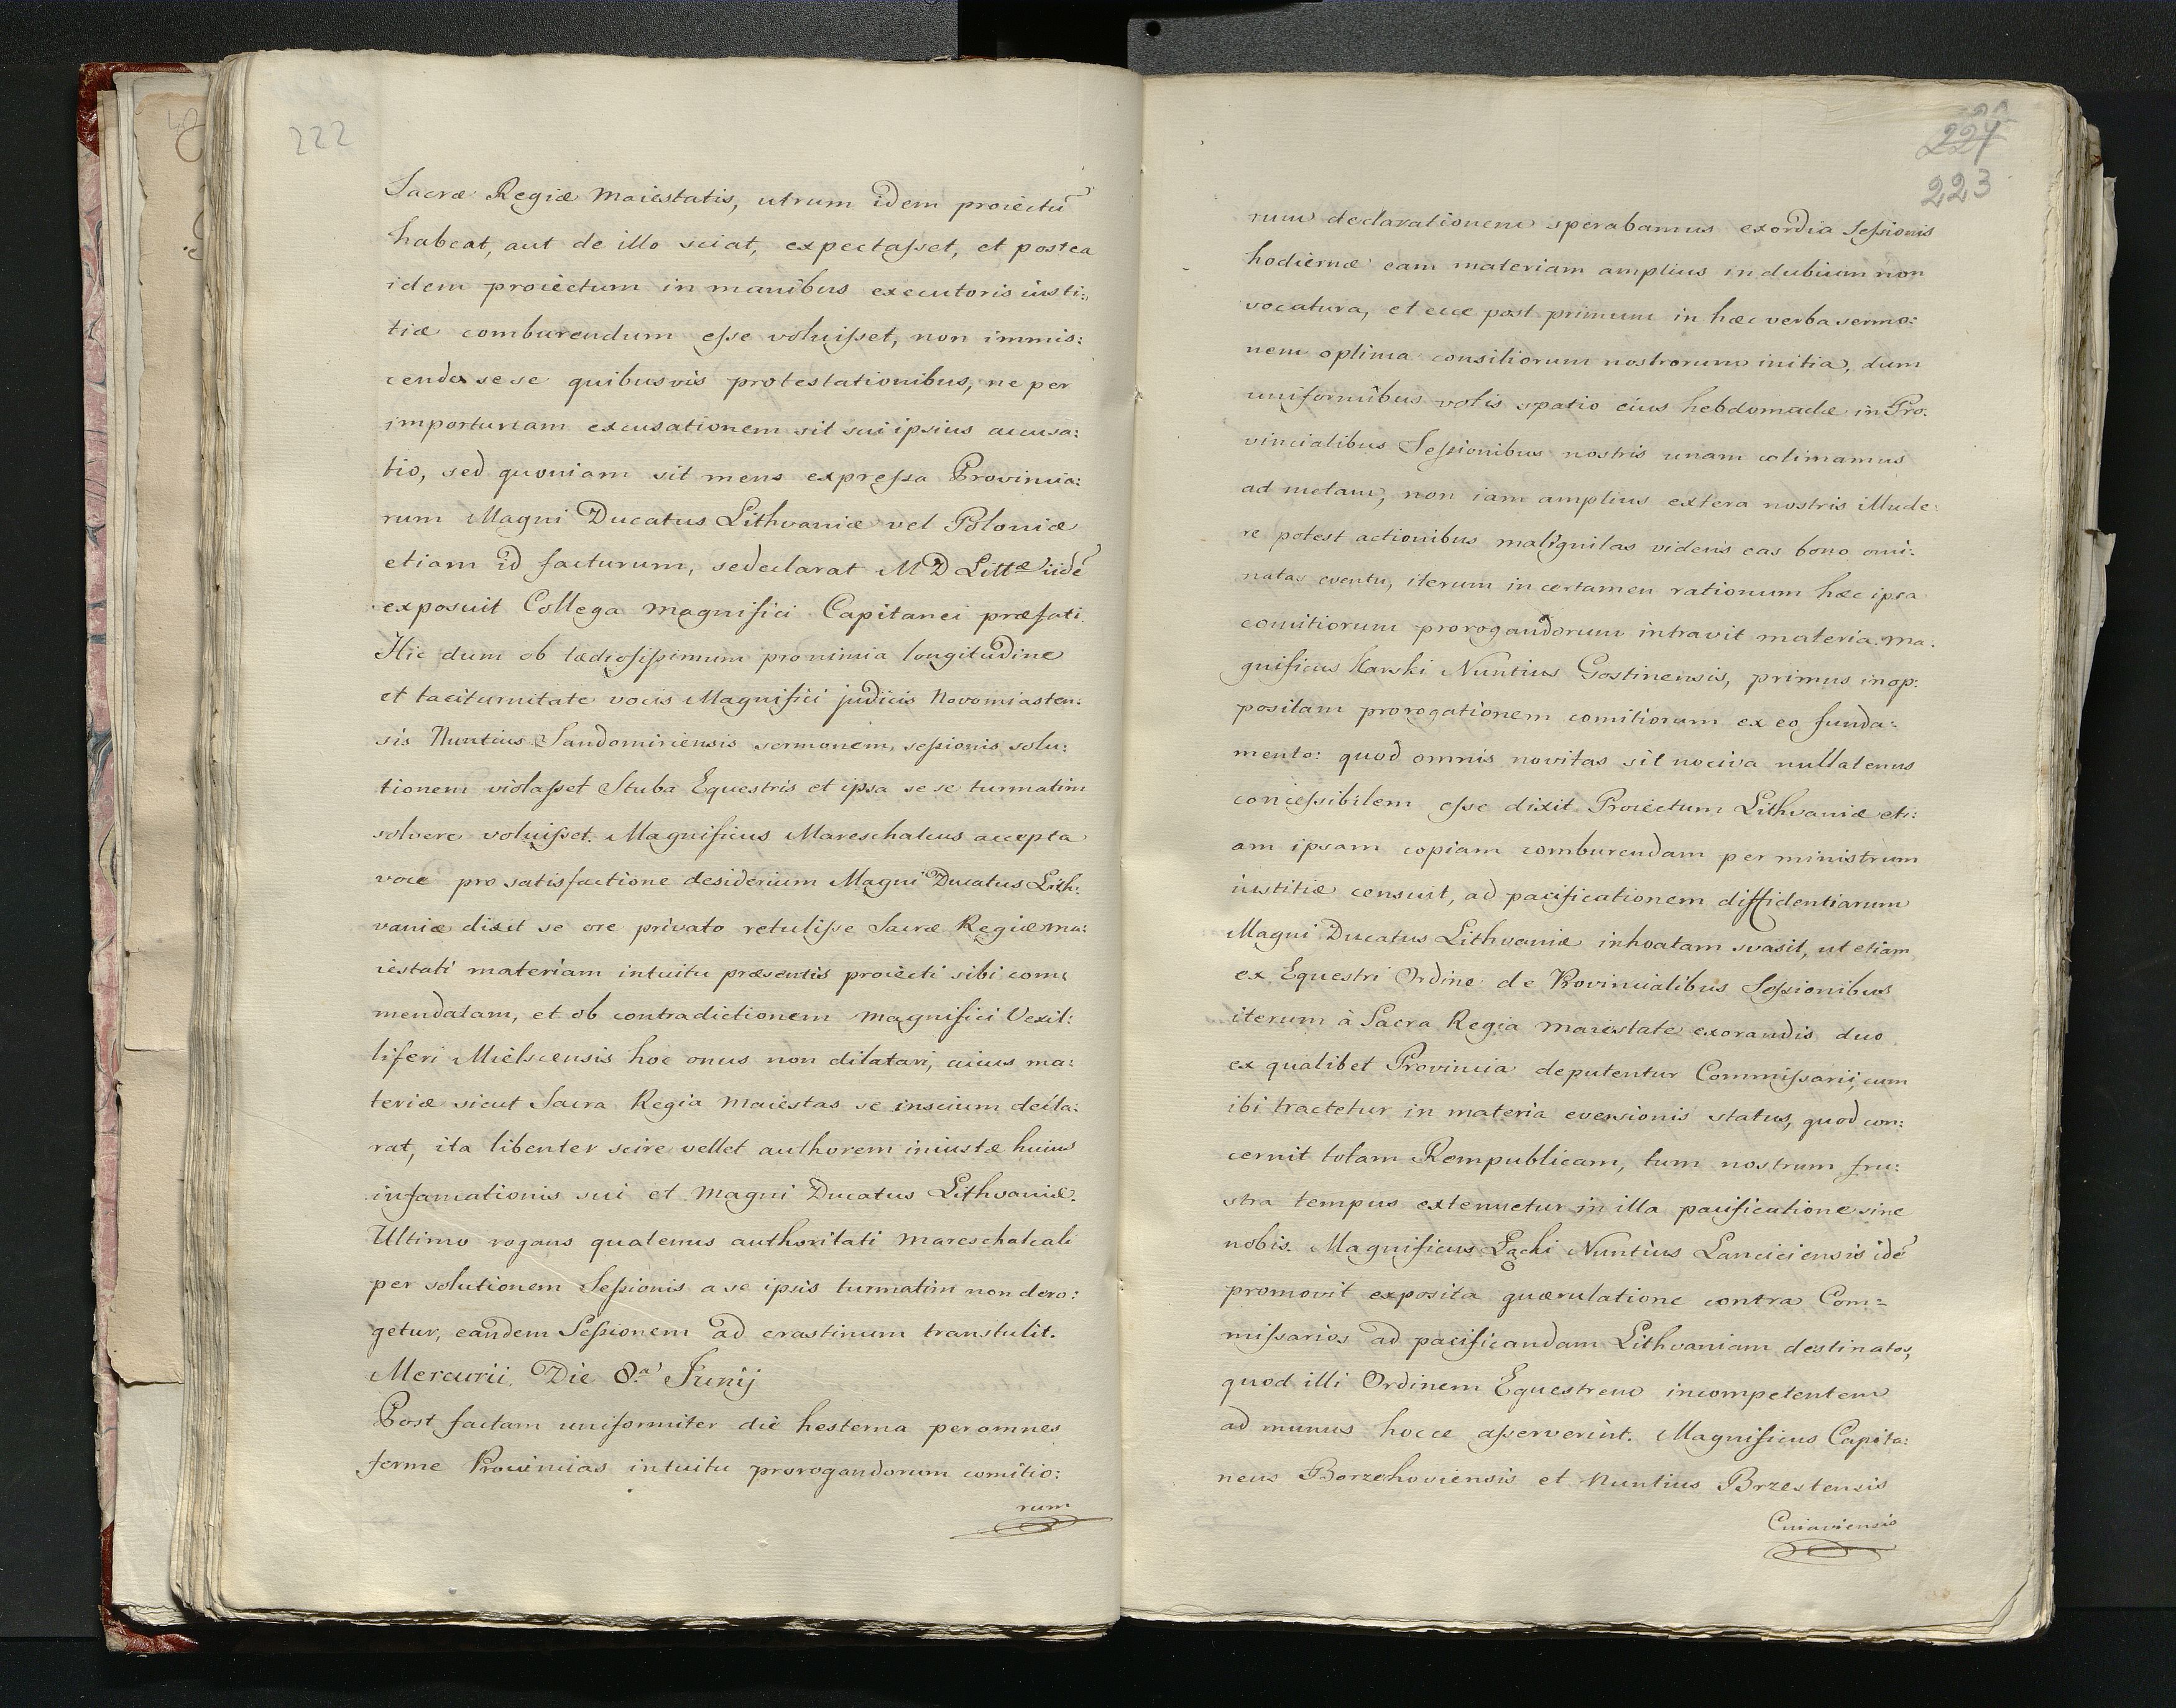 222
Sacræ Regiæ Maiestatis, utrum idem proiectū
habeat, aut de illo sciat, expectaſset, et postea
idem proiectum in manibus executoris iusti:
tiæ comburendum eſse voluiſset, non immis:
cendo sese quibusvis protestationibus, ne per
importunam excusationem sit sui ipsius accusa:
tio, sed quoniam sit mens expreſsa Provincia:
rum Magni Ducatus Lithvaniæ vel Poloniæ
etiam id facturum, se declarat M D Littæ iidē
exposuit Collega Magnifici Capitanei præfati
Hic dum ob tædiosiſsimum pro nimia longitudine
et taciturnitate vocis Magnifici judicis Novomiasten:
sis Nuntius Sandomiriensis sermonem, seſsionis solu:
tionem violaſset Stuba Equestris et ipsa se se turmatim
solvere voluiſset. Magnificus Mareschalcus accepta
voce pro satisfactione desiderium Magni Ducatus Lith:
vaniæ dixit se ore privato retuliſse Sacræ Regiæ ma:
iestati materiam intuitu præsentis proiecti sibi com
mendatam, et ob contradictionem Magnifici Vexil:
liferi Mielscensis hoc onus non dilatari, cuius ma:
teriæ sicut Sacra Regia Maiestas se inscium decla:
rat, ita libenter scire vellet authorem iniustæ huius
infamationis sui et Magni Ducatus Lithvaniæ.
Ultimo rogans quatenus authoritati Mareschalcali
per solutionem Seſsionis a se ipsis turmatim non dero:
getur, eandem Seſsionem ad crastinum transtulit.
Mercurii. Die 8.a Junij
Post factam uniformiter die hesterna per omnes
ferme Provincias intuitu prorogandorum comitio:
rum
224
223
rum declarationem sperabamus exordia Seſsionis
hodiernæ eam materiam amplius in dubium non
vocatura, et ecce post primum in hæc verba sermo:
nem optima consiliorum nostrorum initia, dum
uniformibus votis spatio eius hebdomadæ in Pro.
vincialibus Seſsionibus nostris unam colimamus
ad metam, non iam amplius extera nostris illude:
re potest actionibus malignitas videns eas bono omi:
natas eventu, iterum in certamen rationum hæc ipsa
comitiorum prorogandorum intravit materia. Ma.
gnificus Karski Nuntius Gostinensis, primus in op:
positam prorogationem comitiorum ex eo funda:
mento: quod omnis novitas sit nociva nullatenus
conceſsibilem eſse dixit Proiectum Lithvaniæ eti:
am ipsam copiam comburendam per ministrum
iustitiæ censuit, ad pacificationem diffidentiarum
Magni Ducatus Lithvaniæ inhoatam svasit, ut etiam
ex Equestri Ordine de Provincialibus Seſsionibus
iterum à Sacra Regia Maiestate exorandis duo
ex qualibet Provincia deputentur Commiſsarii, cum
ibi tractetur in materia eversionis status, quod con:
cernit totam Rempublicam, tum nostrum fru:
stra tempus extenuetur in illa pacificatione sine
nobis. Magnificus Łącki Nuntius Lanciciensis idē
promovit exposita quærulatione contra Com=
miſsarios ad pacificandam Lithvaniam destinatos,
quod illi Ordinem Equestrem incompetentem
ad munus hocce aſserverint. Magnificus Capita:
neus Borzchoviensis et Nuntius Brzestensis
Cuiaviensis